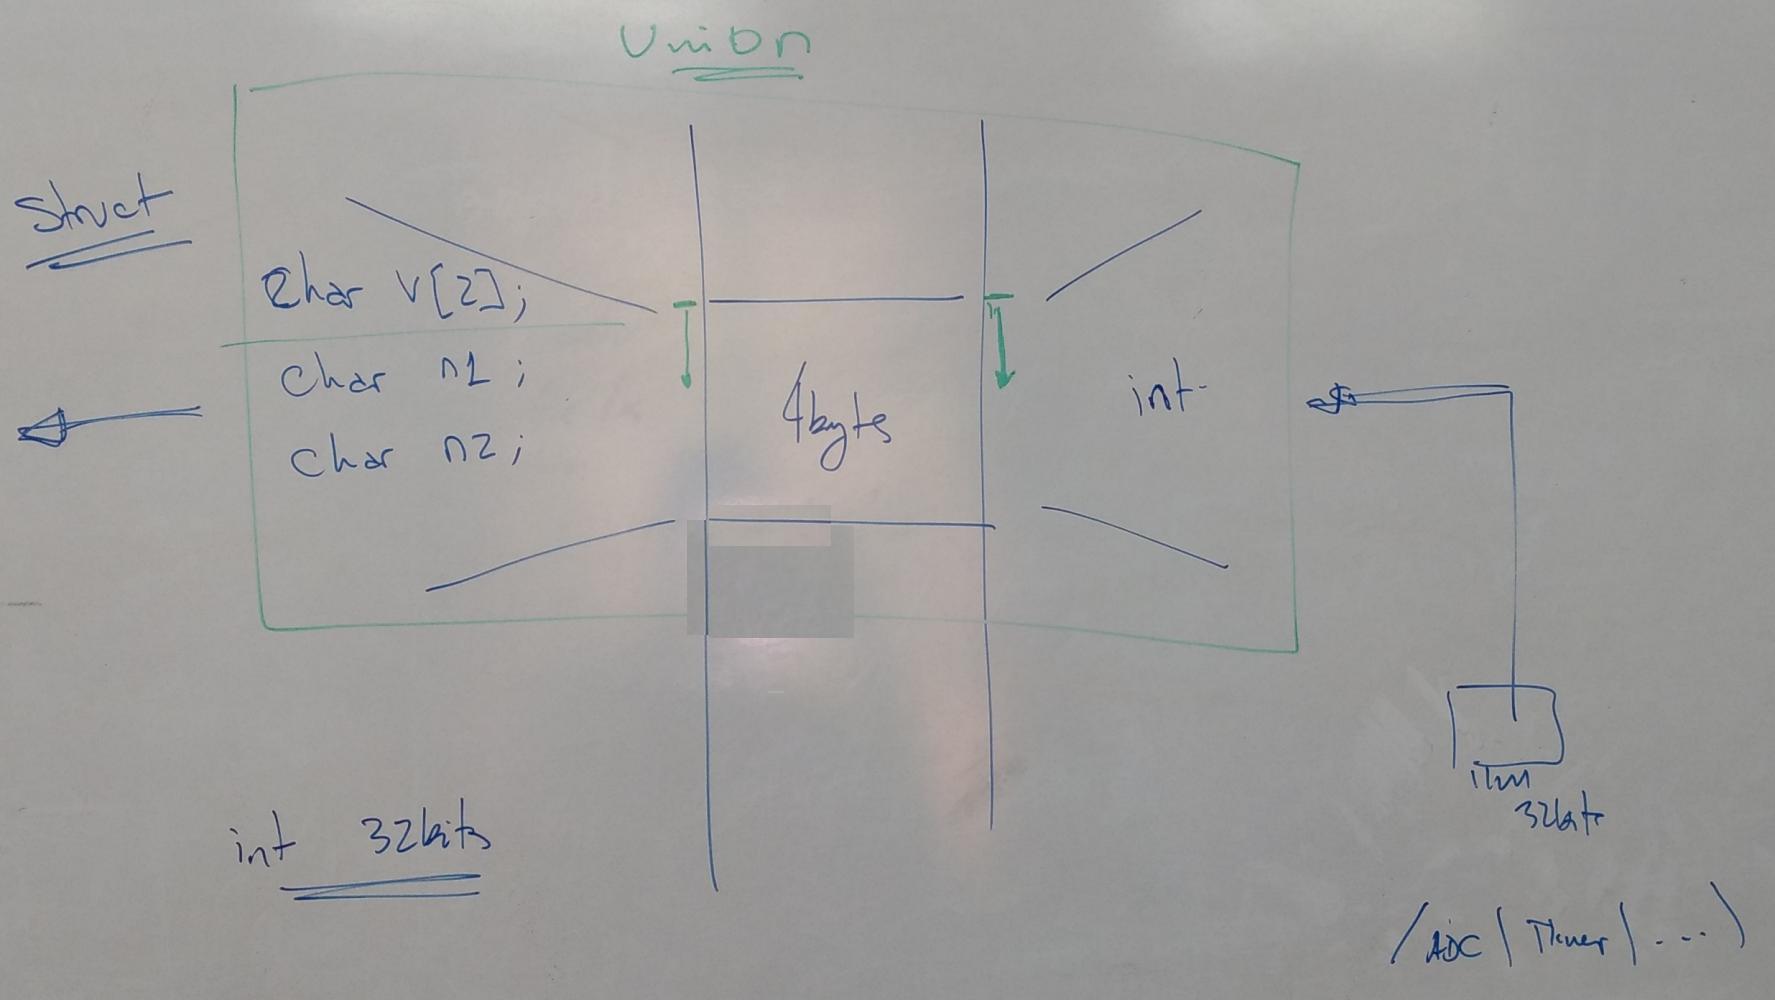 Union
Struct
Char v[2];
Char n1;
Char n2;
4bytes
int
int 32bits
32bits
/ADC | Timer | ....)